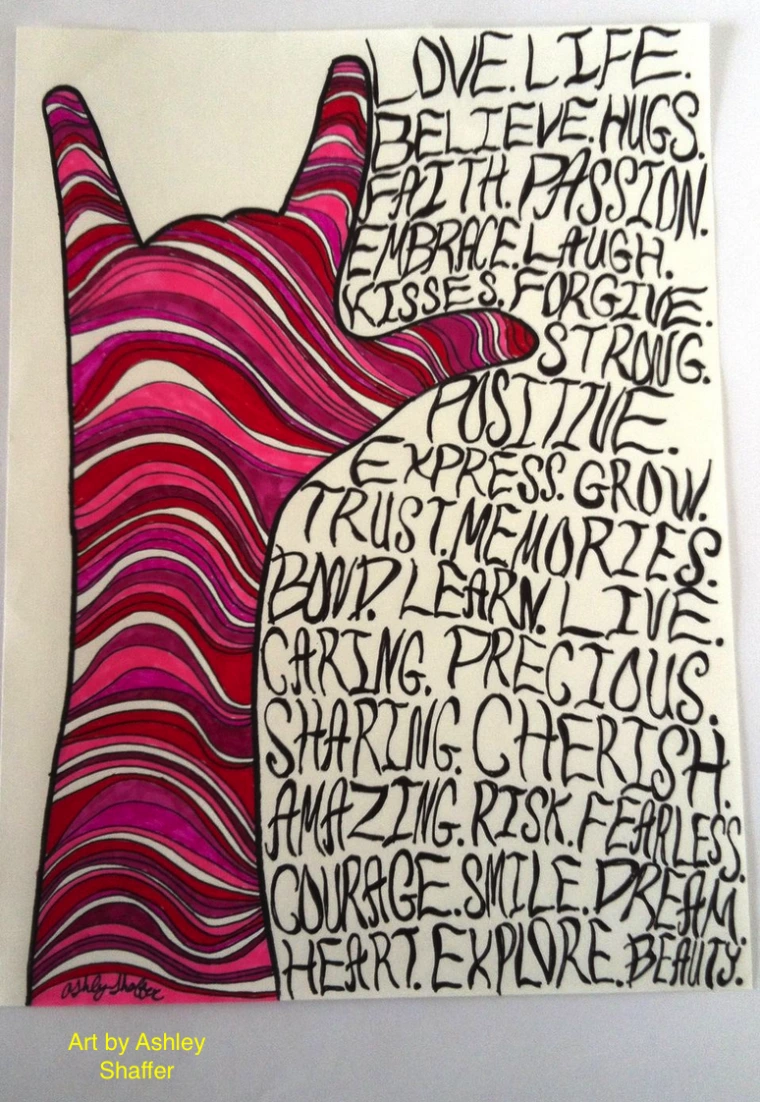 LOVE. LIFE.
BELIEVE. HUGS.
FAITH. PASSION.
EMBRACE. LAUGH.
KISSES. FORGIVE.
STRONG.
POSITIVE.
EXPRESS. GROW.
TRUST. MEMORIES.
BOND. LEARN. LIVE.
CARING. PRECIOUS.
SHARING. CHERISH.
AMAZING. RISK. FEARLESS.
COURAGE. SMILE. DREAM.
HEART. EXPLORE. BEAUTY.
Ashley Shaffer
Art by Ashley
Shaffer